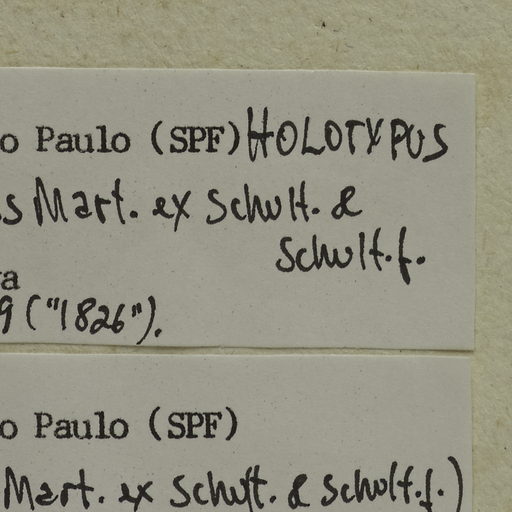 o Paulo (SPF) HOLOTYPUS
s Mart. ex Schult. &
Schult.f.
a
9 ("1826").
o Paulo (SPF)
Mart. ex Schult. & Schult.f.)